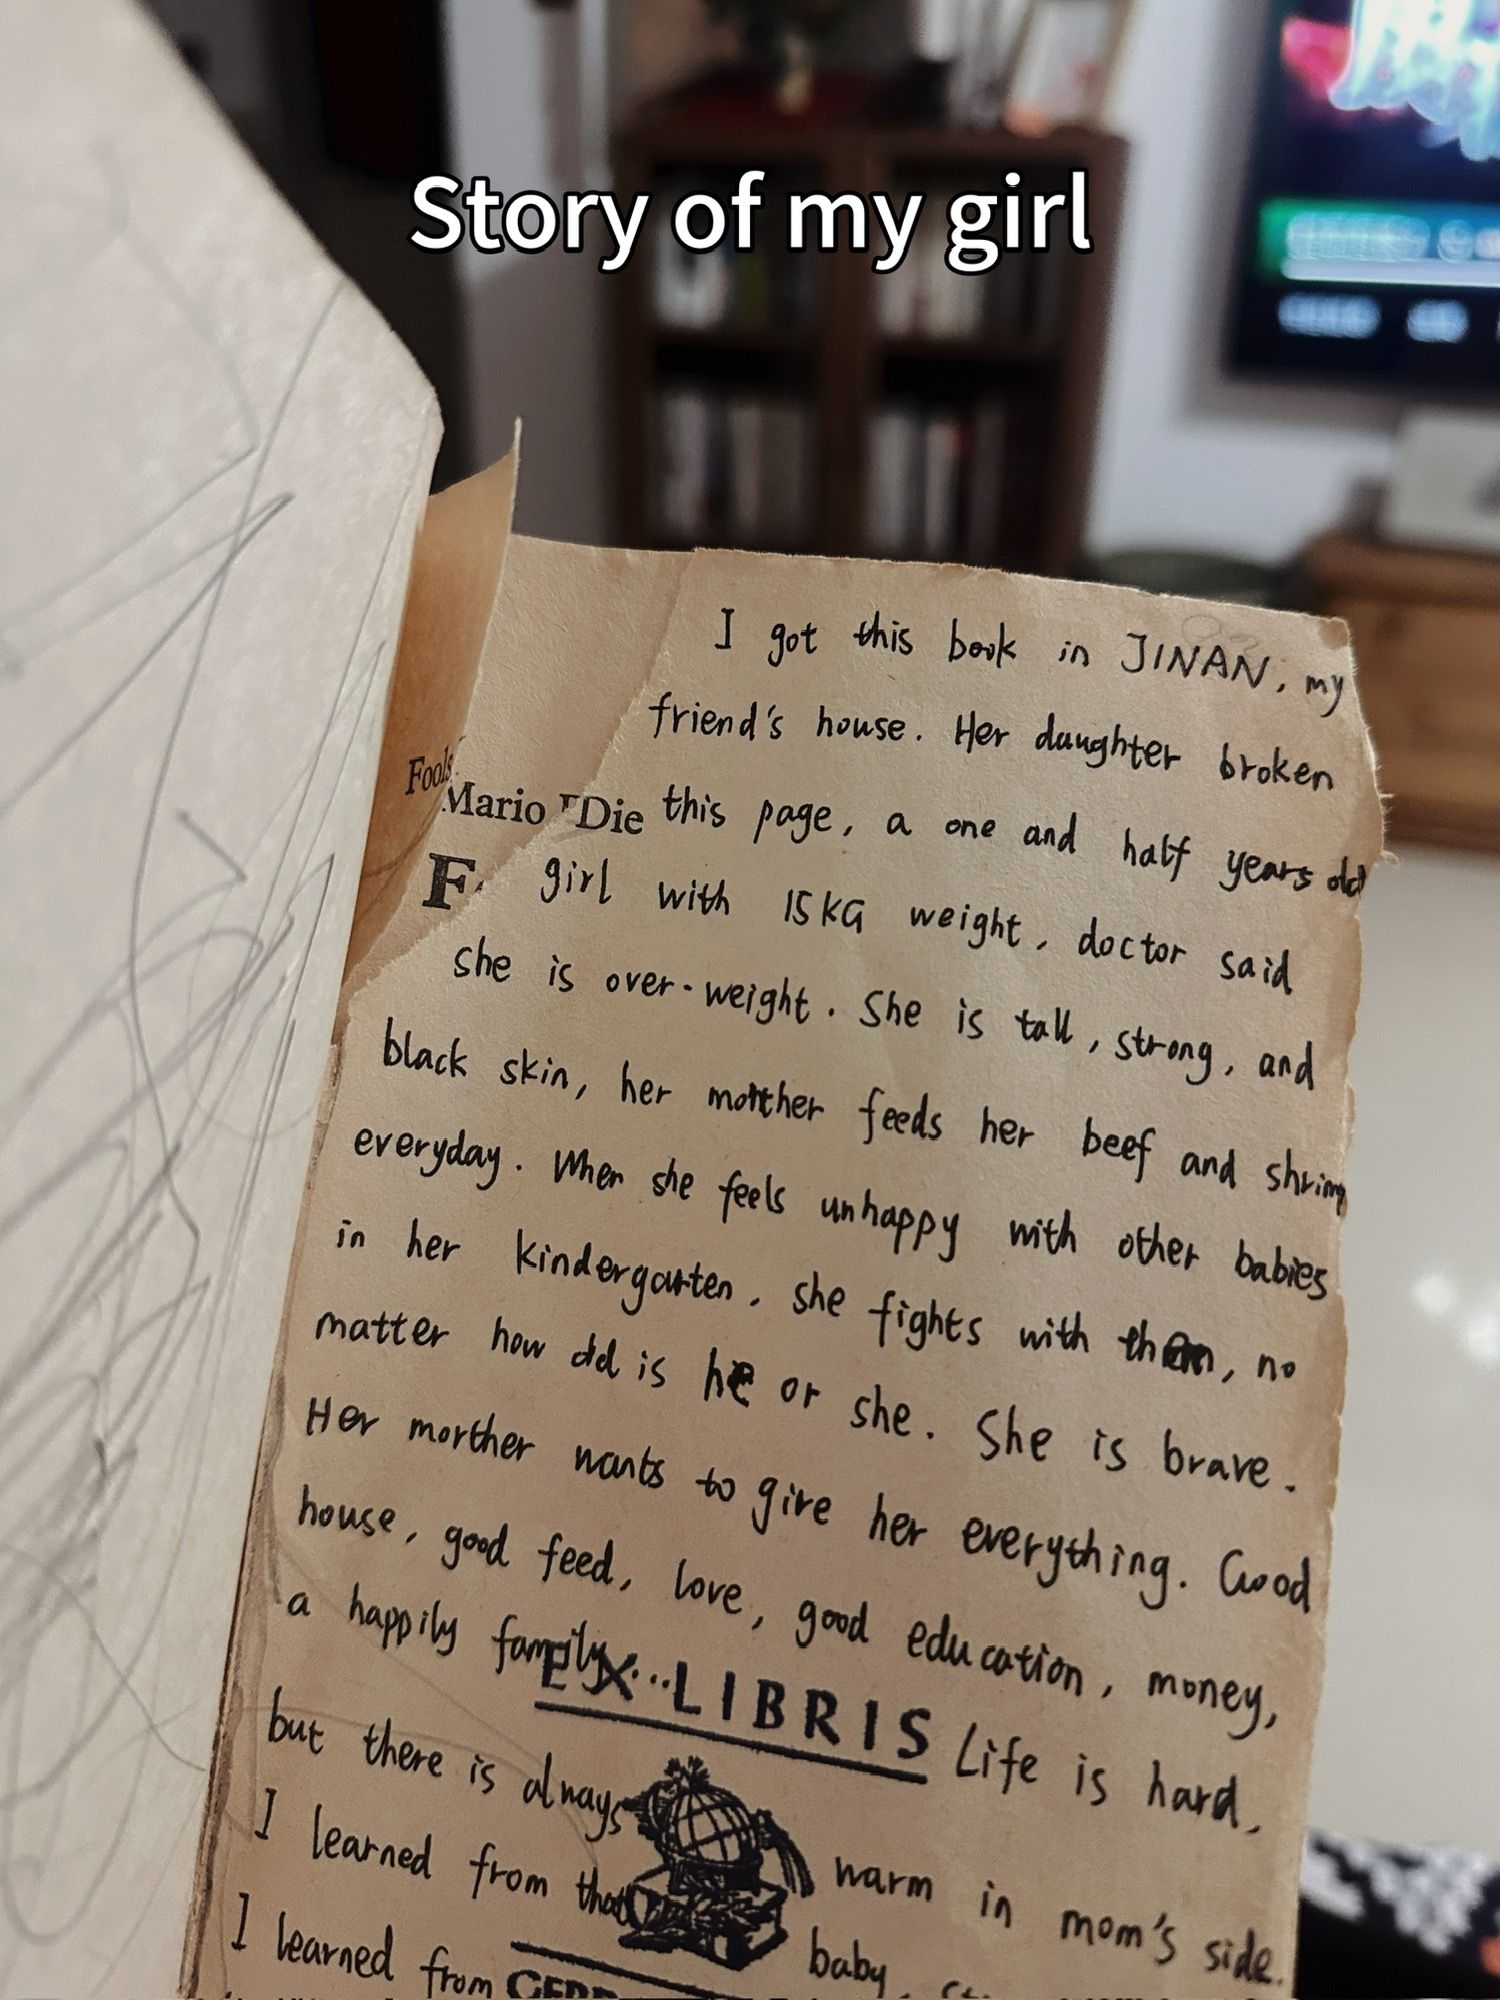 Story of my girl
I got this book in JINAN, my
friend's house. Her daughter broken
Fools
Mario Die
this page, a one and half years old
F
girl with 15KG weight, doctor said
she is over-weight. She is tall, strong, and
black skin, her morther feeds her beef and shrimp
everyday. When she feels unhappy with other babies
in her kindergarten, she fights with them, no
matter how old is he or she. She is brave.
Her morther wants to give her everything. Good
house, good feed, love, good education, money,
a happily family...
EX-LIBRIS
Life is hard,
but there is always warm in mom's side.
I learned from that baby,
I learned from